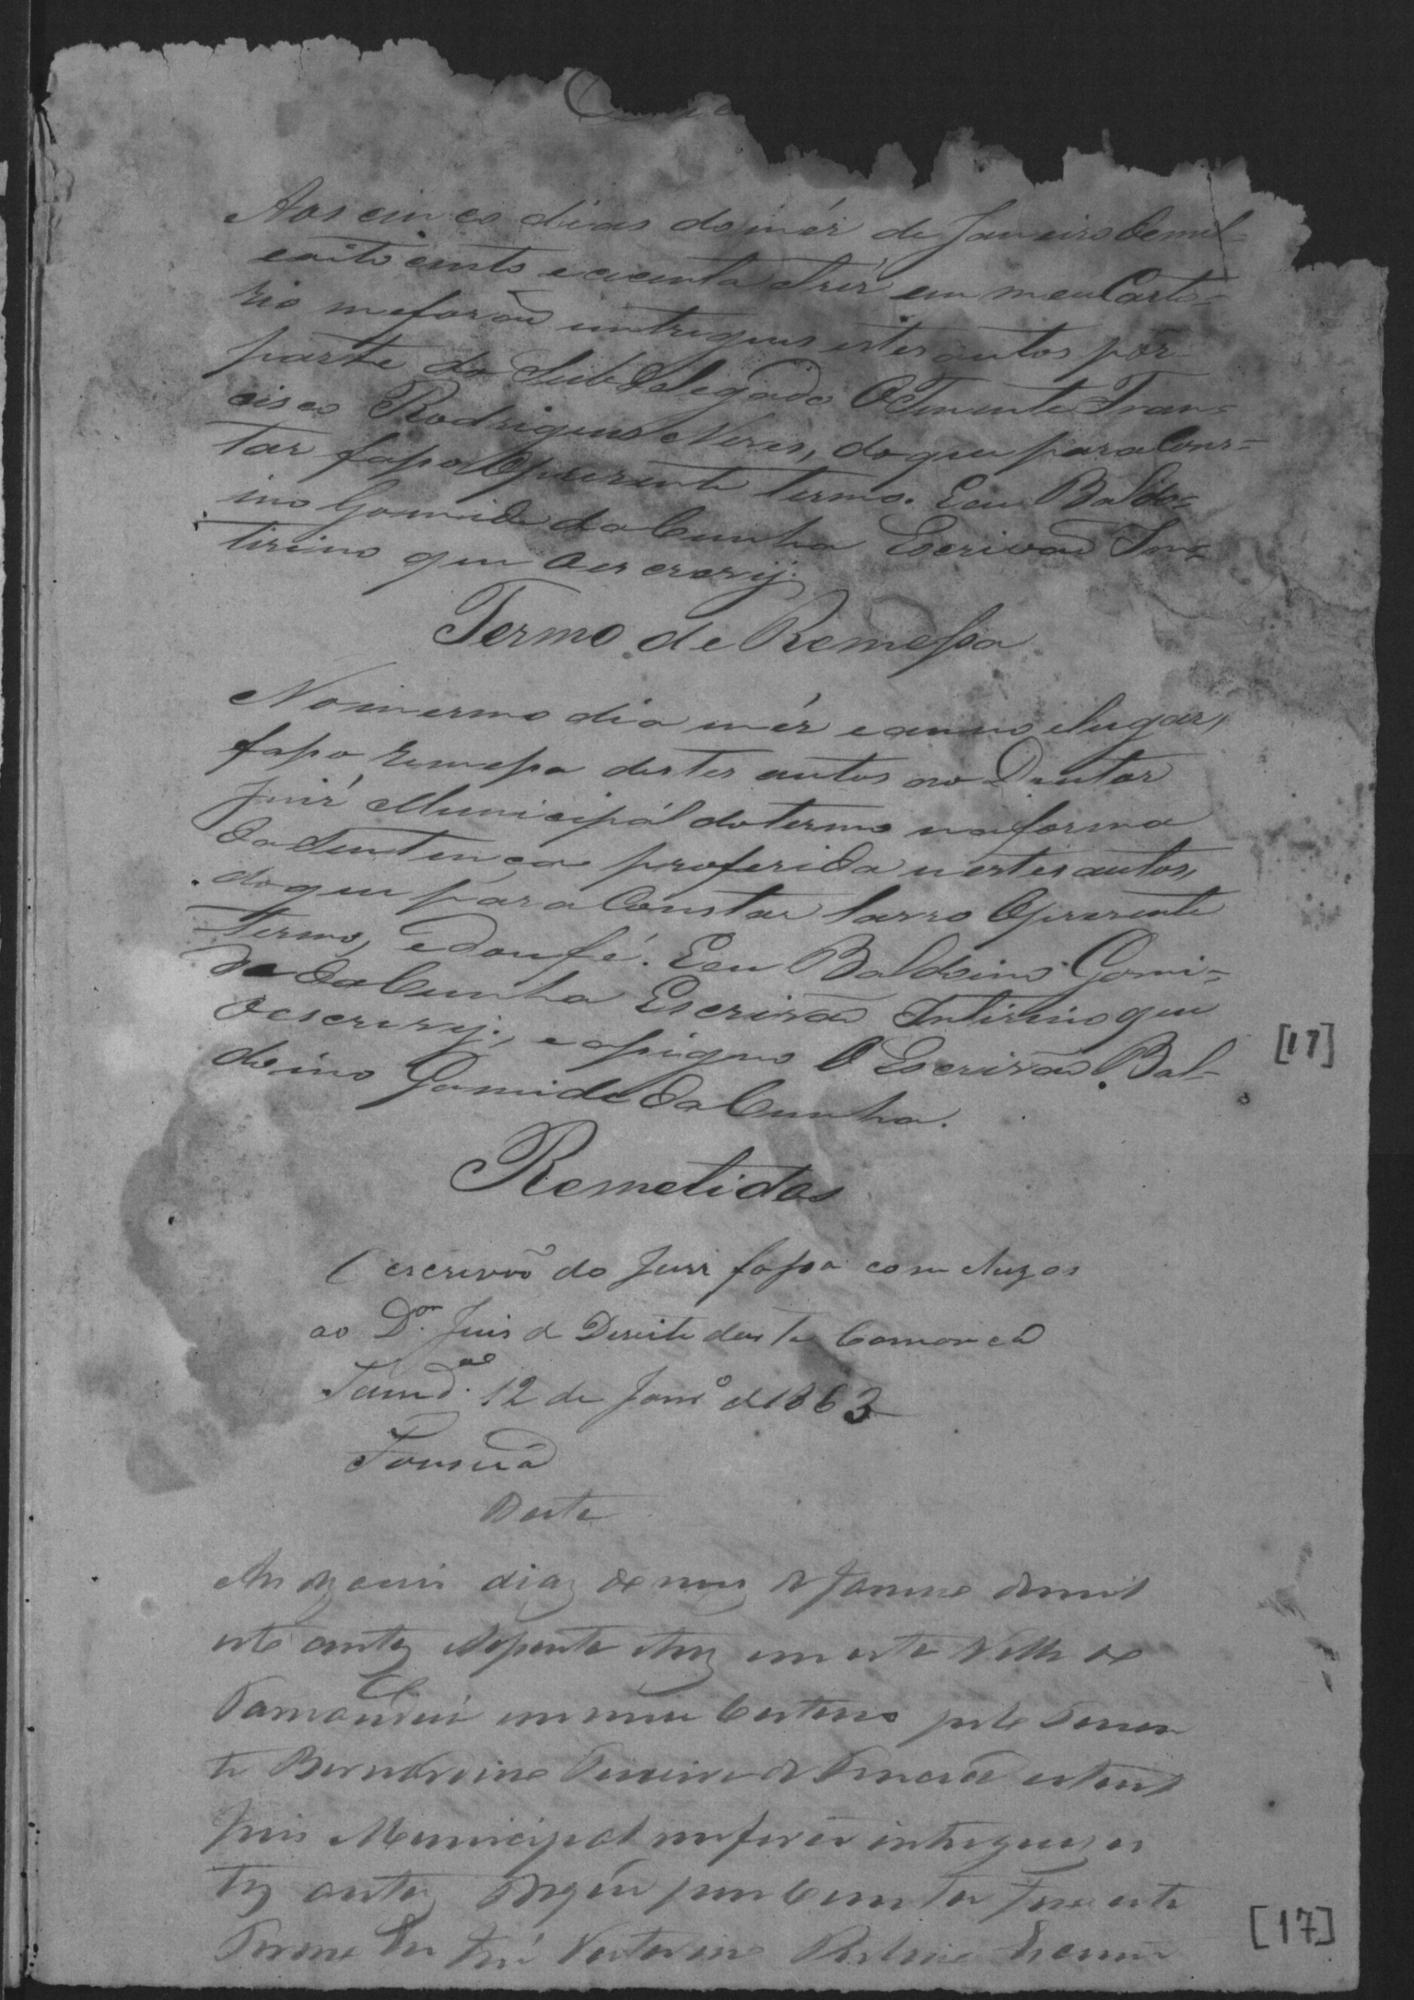 Aos cinco dias do mêz de Janeiro de mil
e oito centos e secenta e trez em meu Carto-
rio me forão entregues estes autos por
parte do Sub Delegado O Tenente Fran-
cisco Rodrigues Neves, do que para Cons-
tar faço O prezente termo. E eu Baldo-
ino Gomide da Cunha Escrivão In-
tirino que o escrevy.
Termo de Remessa
No mesmo dia mêz e anno e lugar,
faço remessa destes autos ao Doutor
Juiz Municipal do termo na forma
da Sentença proferida nestes autos,
do que para Constar lavro O prezente
termo, e dou fé. E eu Baldoino Gomi-
de da Cunha Escrivão Intirino que
o escrevy, e assigno O Escrivão Bal-
doino Gomide da Cunha.
Remetidos
O escrivão do Juri fassa concluzos
ao Dor. Juis de Direito desta Comarca
Tamd.ᵃ 12 de Janrº de 1863
Fonseca
Data
dias do mez de Janeiro de mil
oito centos e Sesenta e trez em esta Villa de
Tamanduá em meu Cartorio pelo Tenen
te Bernardino de
Juis Municipal me forão intregues es
tes autos do que para Constar faço este
Termo Eu José Escrivão
[17]
[17]